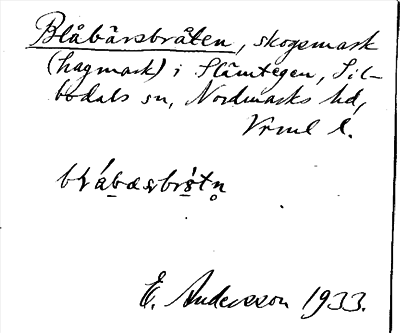 Blåbärsbråten, skogsmark
(hagmark) i Slämtegen, Sil-
bodals sn, Nordmarks hd,
Vrml l.
E. Andersson 1933.